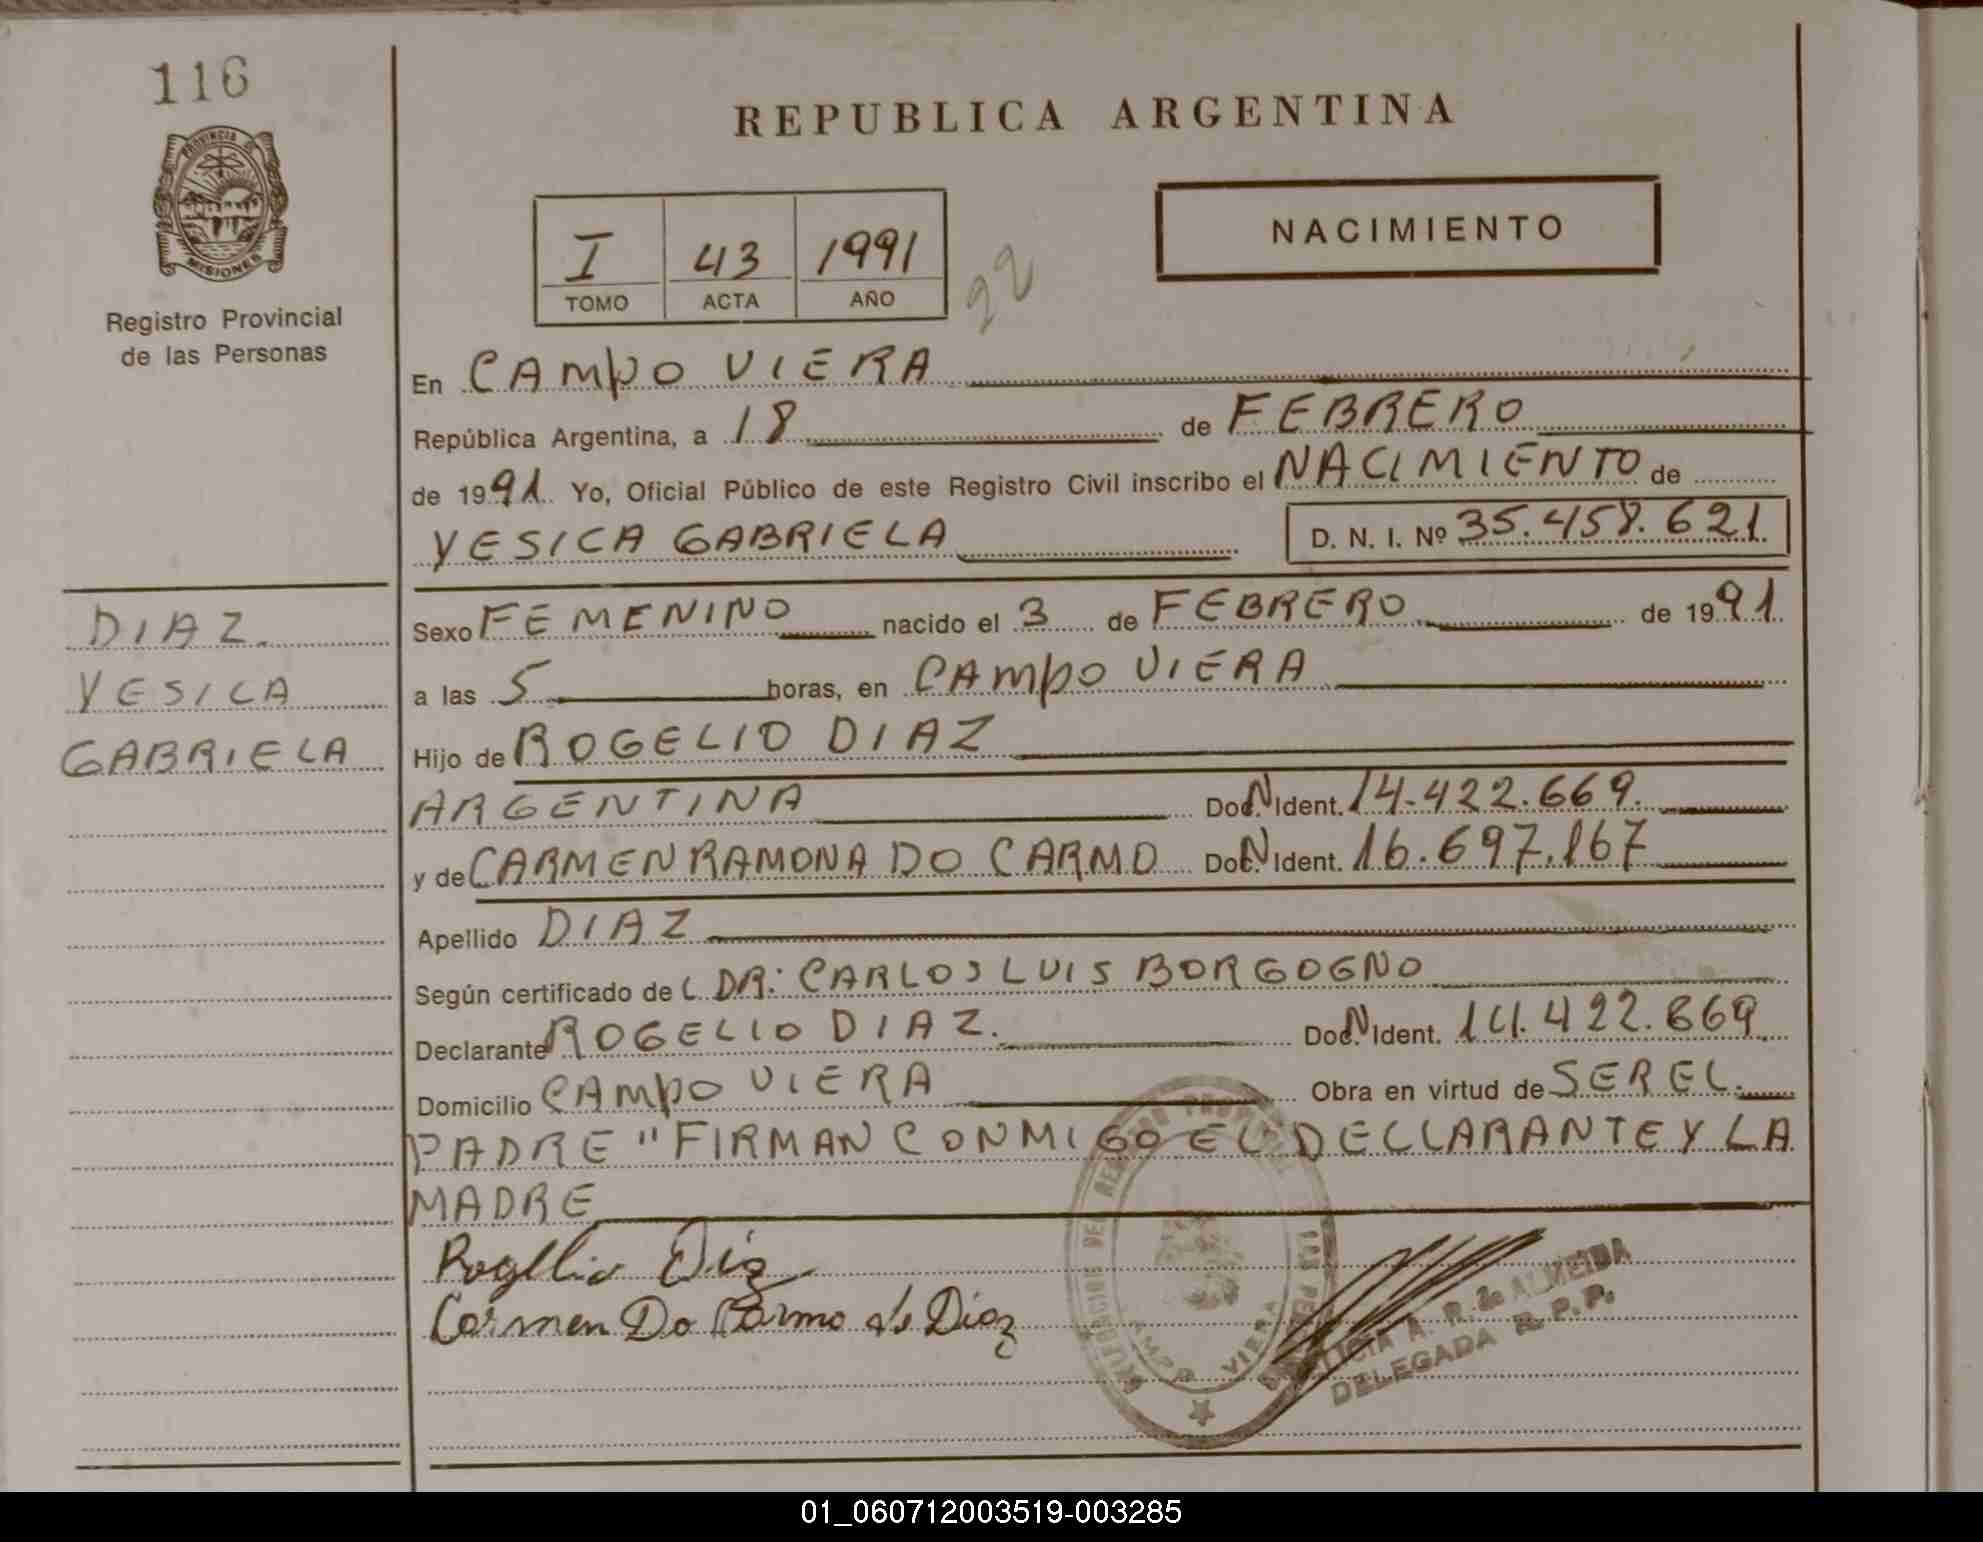 116
PROVINCIA DE
MISIONES
Registro Provincial
de las Personas
DIAZ
YESICA
GABRIELA
REPUBLICA ARGENTINA
I 43 1991
TOMO ACTA AÑO
22
NACIMIENTO
En CAMPO VIERA
República Argentina, a 18 de FEBRERO
de 1991. Yo, Oficial Público de este Registro Civil inscribo el NACIMIENTO de
YESICA GABRIELA D. N. I. Nº 35.458.621
Sexo FEMENINO nacido el 3 de FEBRERO de 1991
a las 5 horas, en CAMPO VIERA
Hijo de ROGELIO DIAZ
ARGENTINA Doc. N Ident. 14.422.669
y de CARMEN RAMONA DO CARMO Doc. N Ident. 16.697.167
Apellido DIAZ
Según certificado de L DR: CARLOS LUIS BORGOGNO
Declarante ROGELIO DIAZ. Doc. N Ident. 14.422.669
Domicilio CAMPO VIERA Obra en virtud de SER EL
PADRE "FIRMAN CONMIGO EL DECLARANTE Y LA
MADRE
Rogelio Diaz
Carmen Do Carmo de Diaz
CAMPO VIERA
ALICIA A. R. de ALMEIDA
DELEGADA R. P. P.
01_060712003519-003285